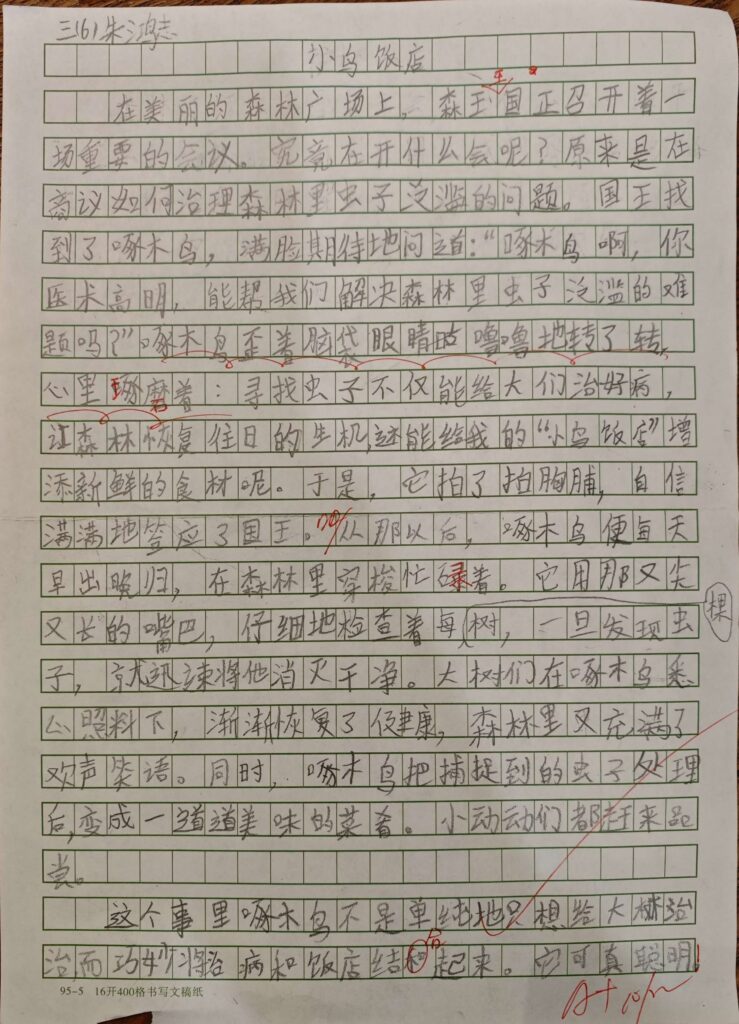 三(6)朱鸿志
小鸟饭店
在美丽的森林广场上，森王国正召开着一
场重要的会议。究竟在开什么会呢？原来是在
商议如何治理森林里虫子泛滥的问题。国王找
到了啄木鸟，满脸期待地问道：“啄木鸟啊，你
医术高明，能帮我们解决森林里虫子泛滥的难
题吗？”啄木鸟歪着脑袋眼睛咕噜噜地转了转，
心里琢磨着：寻找虫子不仅能给大们治好病，
让森林恢复往日的生机，还能给我的“小鸟饭店”增
添新鲜的食材呢。于是，它拍了拍胸脯，自信
满满地答应了国王。从那以后，啄木鸟便每天
早出晚归，在森林里穿梭忙碌着。它用那又尖
又长的嘴巴，仔细地检查着每棵树，一旦发现虫
子，就迅速将他消灭干净。大树们在啄木鸟悉
心照料下，渐渐恢复了健康，森林里又充满了
欢声笑语。同时，啄木鸟把捕捉到的虫子处理
后，变成一道道美味的菜肴。小动动们都赶来品
尝。
这个事里啄木鸟不是单纯地只想给大树治
治而巧妙将治病和饭店结合起来。它可真聪明！
A+ 10/12
95-5 16开400格书写文稿纸